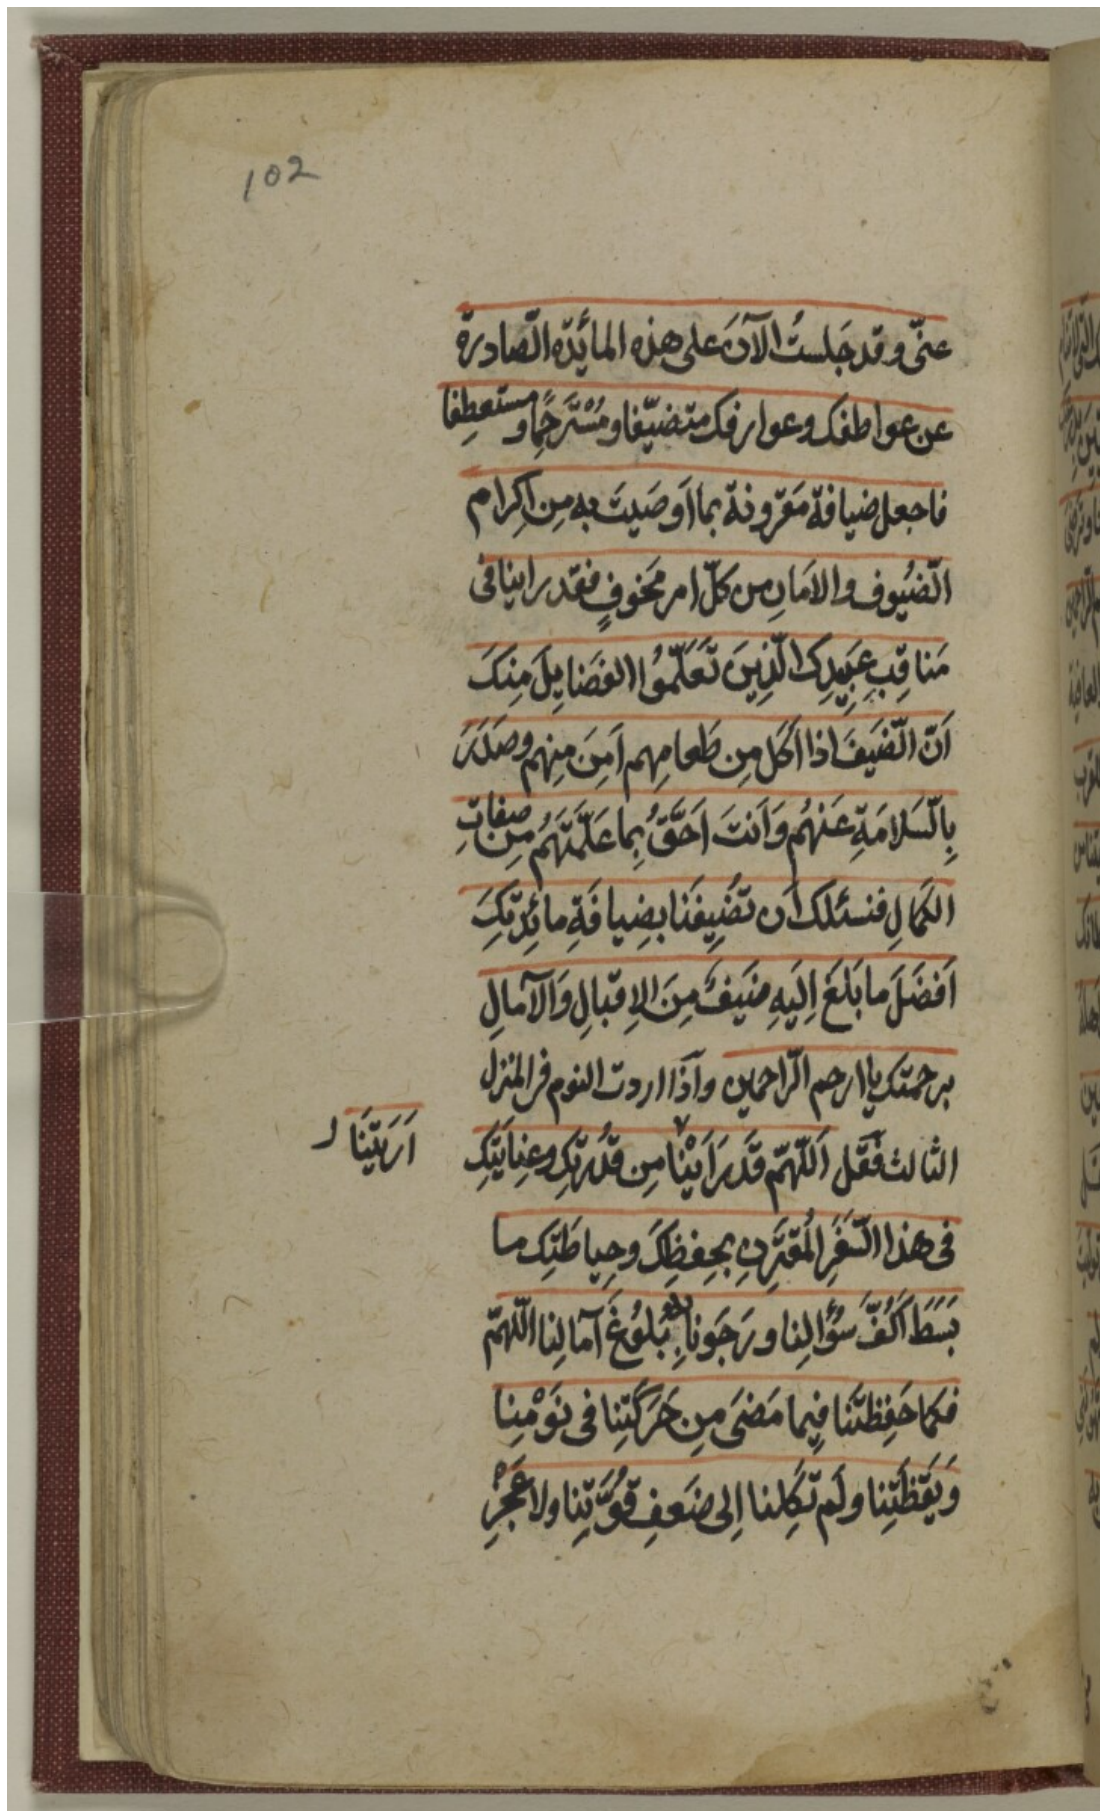 102
عنّى وقد جَلستُ الآنَ على هذه المائدة الصّادرة
عن عواطفك وعوارفك متضيّفا ومُسْتَرحِمًا ومستعطِفا
فاجعل ضيافة مَقرونة بما اَوصَيتَ به مِن اِكرام
الضّيُوف والامَانِ من كلّ امر مَخوفٍ فقد راينا فى
مَناقِبِ عَبِيدِكَ الّذِينَ تَعَلَّمُوا الفَضَايِلَ مِنكَ
اَنّ الضّيَفَ اذا اَكَل مِن طَعامِهِم اَمِنَ مِنهم وصَدَرَ
بِالسّلامَةِ عَنهُم وَاَنتَ اَحَقُّ بِما عَلَّمتَهُم مِن صِفاتِ
الكَمالِ فنسئلك اَن تُضِيفَنا بِضِيافَةِ مائِدَتِكَ
اَفضَلَ ما بَلَغَ اِلَيهِ ضَيفٌ مِنَ الاِقبالِ وَالآمالِ
برحمتك يا ارحم الرّاحمين واَذا اردت النوم فى المنزل
الثالث فَقُل اَللّهمّ قَد رَاَيْنا مِن قُدرَتِكَ وعِنايَتِكَ
اَرَيتَنَا
فى هذا السّفَرِ المُقتَرِنِ بِحِفظِكَ وحِياطَتِك ما
بَسَطَ اَكُفَّ سُؤالِنا ورَجَونا بِهِ بُلوُغَ آمالِنا اللّهمّ
فكما حَفِظتَنا فِيما مَضىَ مِن حَرَكَتِنا فى نَوْمِنا
وَيَقَظَتِنا ولَم تَكِلنا اِلى ضَعفِ قُوَّتِنا ولا عَجْزِ